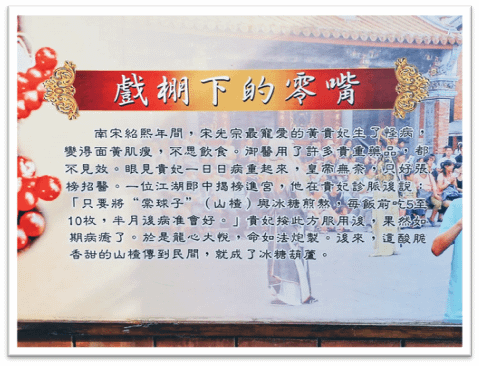 戲棚下的零嘴
南宋紹熙年間，宋光宗最寵愛的黃貴妃生了怪病，
變得面黃肌瘦，不思飲食。御醫用了許多貴重藥品，都
不見效。眼見貴妃一日日病重起來，皇帝無奈，只好張
榜招醫。一位江湖郎中揭榜進宮，他在貴妃診脈後說：
「只要將“棠球子”（山楂）與冰糖煎熬，每飯前吃5至
10枚，半月後病准會好。」貴妃按此方服用後，果然如
期病癒了。於是龍心大悅，命如法炮製。後來，這酸脆
香甜的山楂傳到民間，就成了冰糖葫蘆。